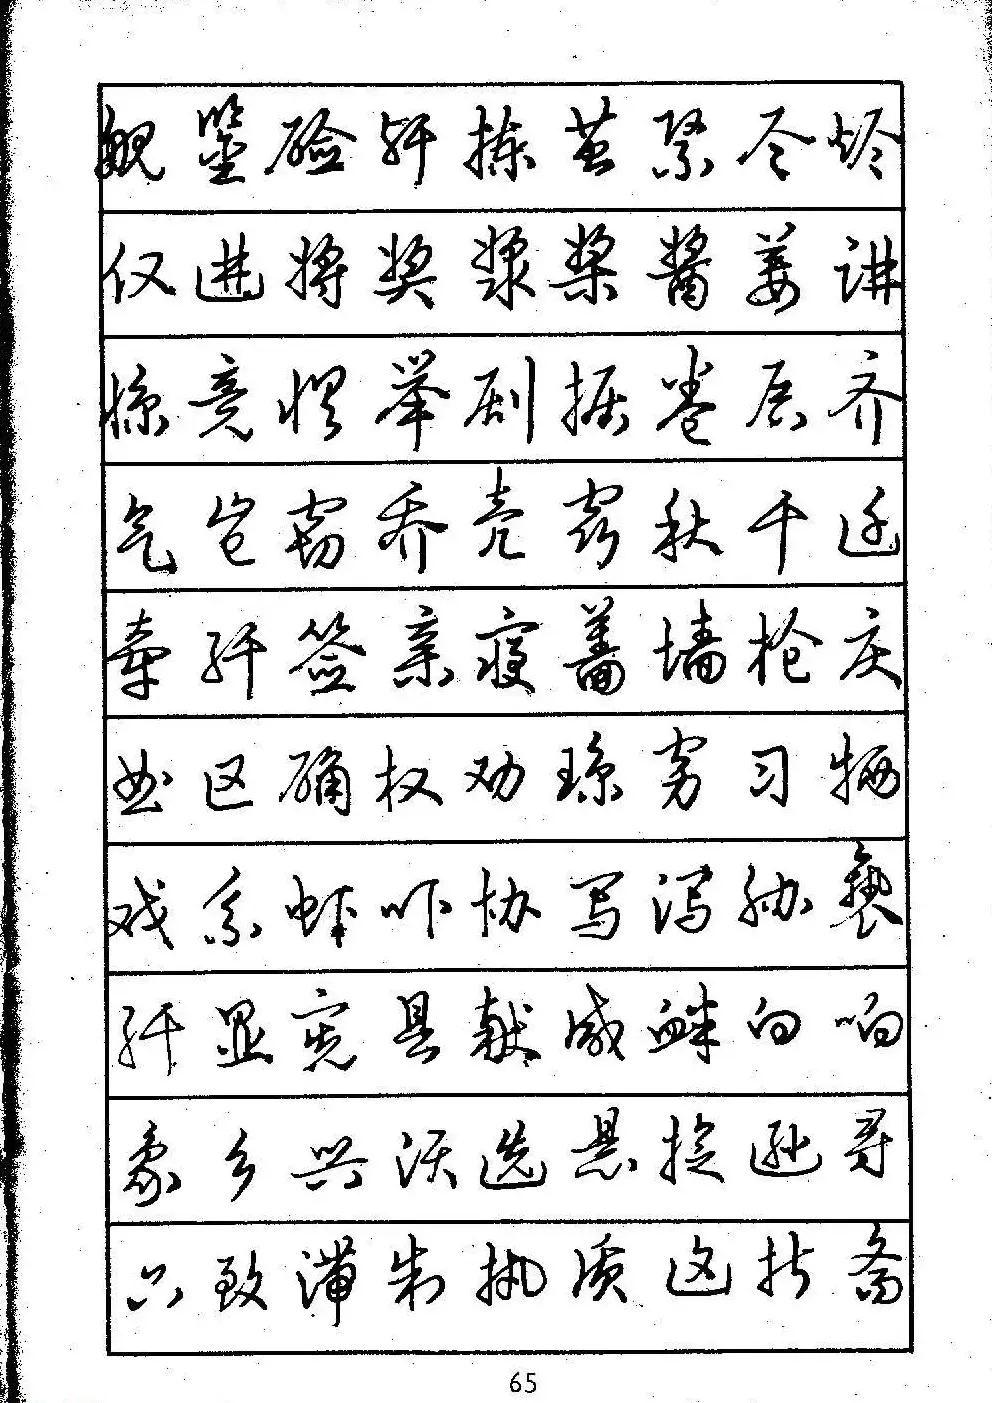 舰鉴硷歼拣茧紧尽烬
仅进将奖浆桨酱姜讲
惊竞惧举剧据卷居齐
气岂窃乔壳窍秋千迁
牵纤签亲寝蔷墙枪庆
区确权劝琼穷习牺
戏系虾吓协写泻胁亵
纤显宪县献咸衅向响
象乡兴选悬旋逊寻
只致滞制执质这折斋
65